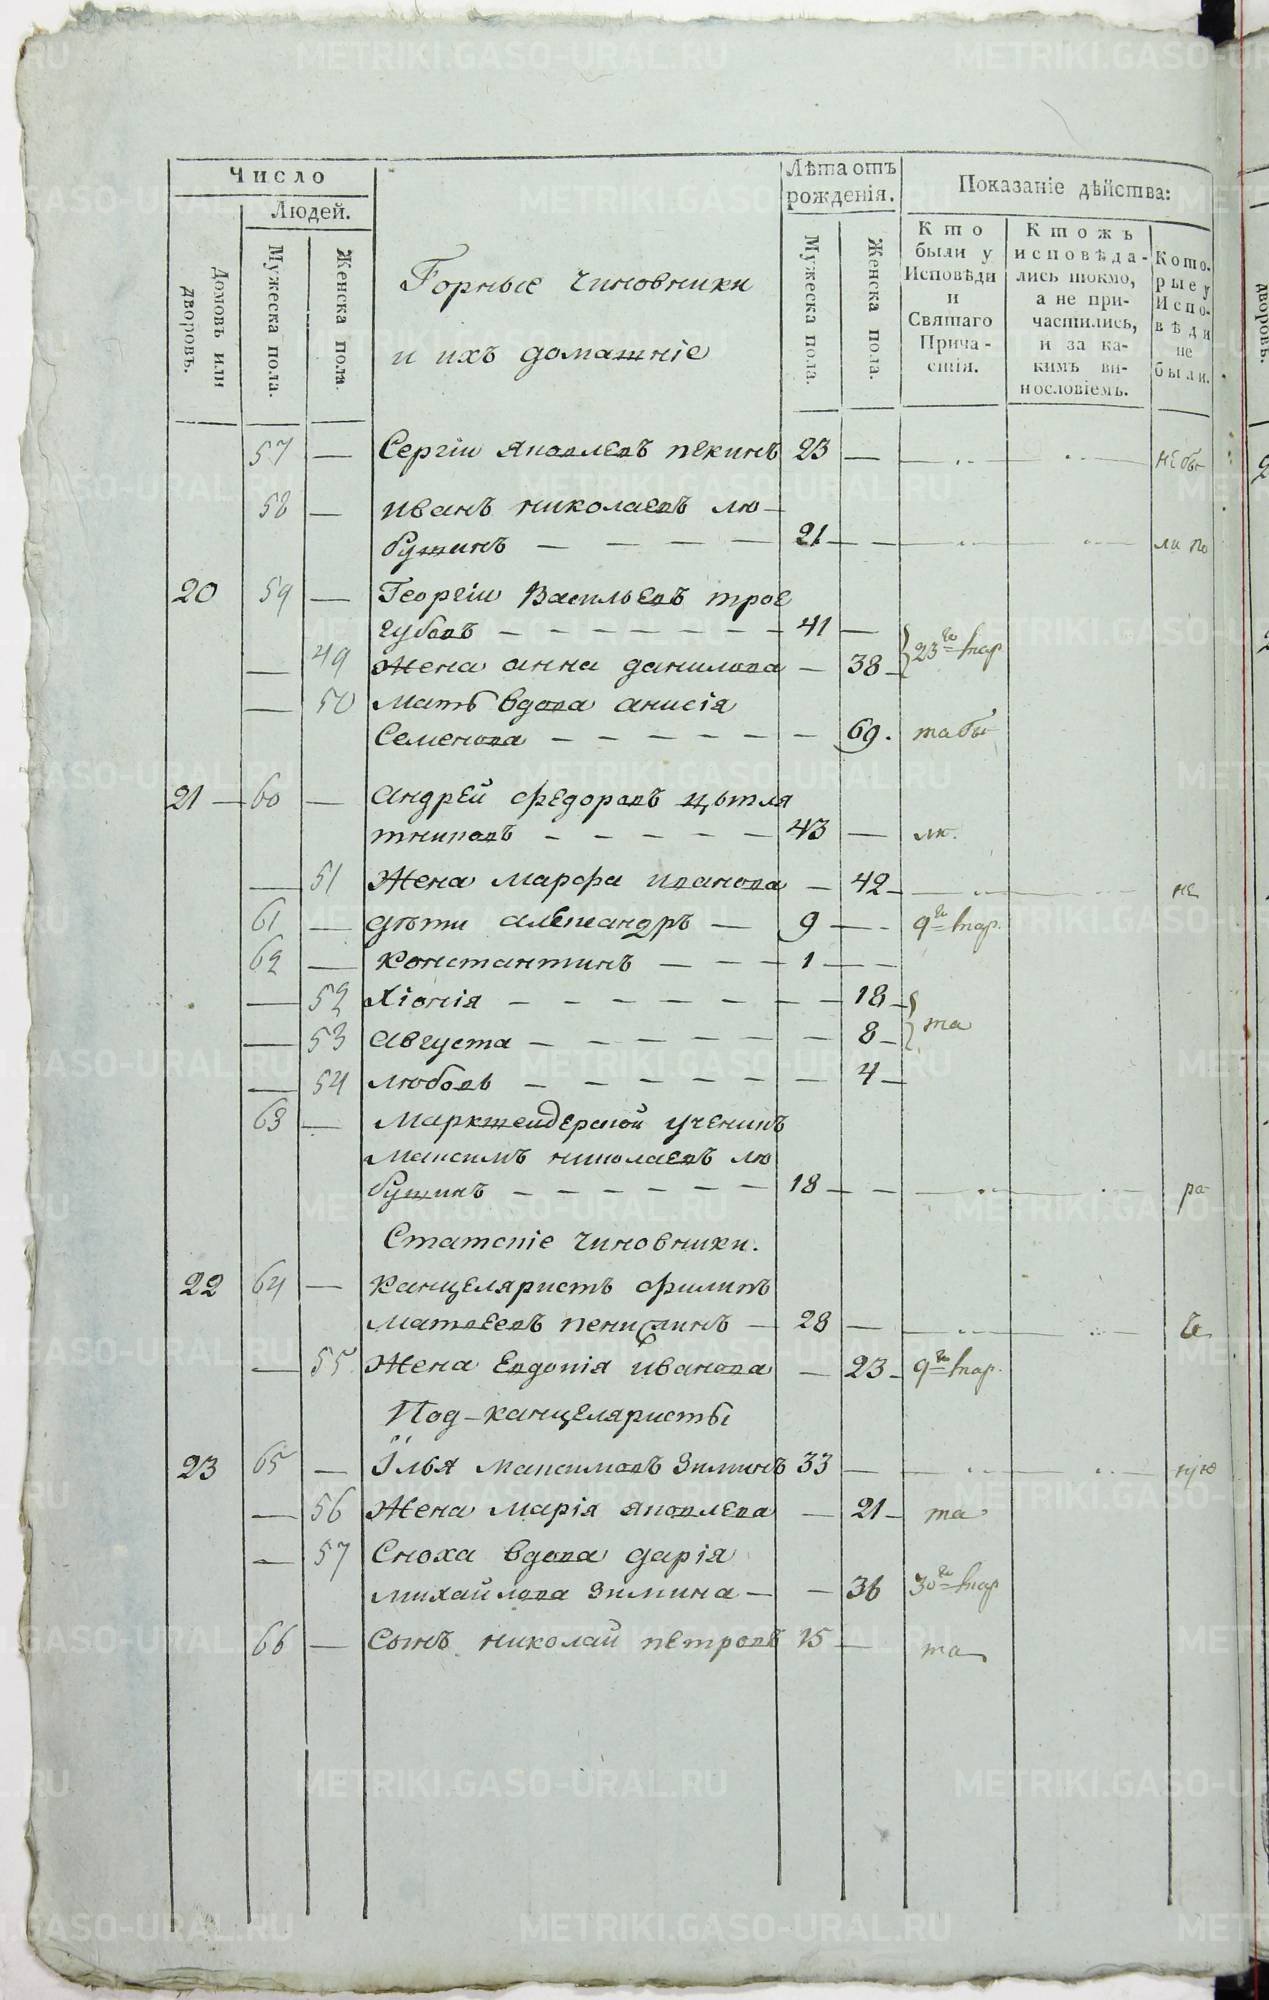 Число
Людей.
Домовъ или дворовъ.
Мужеска пола.
Женска пола.
Горные чиновники
и ихъ домашніе
Лѣта отъ рожденія.
Мужеска пола.
Женска пола.
Показаніе дѣйства:
Кто были у Исповѣди и Святаго Прича-стія.
Ктожъ исповѣда-лись токмо, а не при-частились, и за ка-кимъ ви-нословіемъ.
Кото-рые у Испо-вѣди не были.
57 — Сергіи Яковлевъ Пекинъ 23 — не бы
58 — Иванъ Николаевъ Лю-
бушинъ — 21 — ли по
20 59 — Георгіи Васильевъ Трое
губовъ — 41 —
— 49 Жена Анна Данилова — 38 23 го мар
— 50 Мать вдова Анисія
Семенова — 69. та бы
21 — 60 — Андрей Федоровъ
43 — ли.
— 51 Жена Марфа Иванова — 42 — не
61 — Дѣти Александръ — 9 — 9 го мар.
62 — Константинъ — 1 —
— 52 Хіонія — 18 та
— 53 Августа — 8
— 54 Любовь — 4
63 — Маркшейдерской ученикъ
Максимъ Николаевъ Лю
бушинъ — 18 — ра
Статскіе чиновники.
22 64 — Канцеляристъ Филипъ
Матвеевъ — 28 —
— 55 Жена Евдокія Иванова — 23 9 го мар.
Под-канцеляристы
23 65 — Илья Максимовъ Зиминъ 33 — ную
— 56 Жена Марія Яковлева — 21 та
— 57 Сноха вдова Дарія
Михайлова Зимина — 36 30 го мар
66 — Сынъ Николай Петровъ 15 — та
METRIKI.GASO-URAL.RU